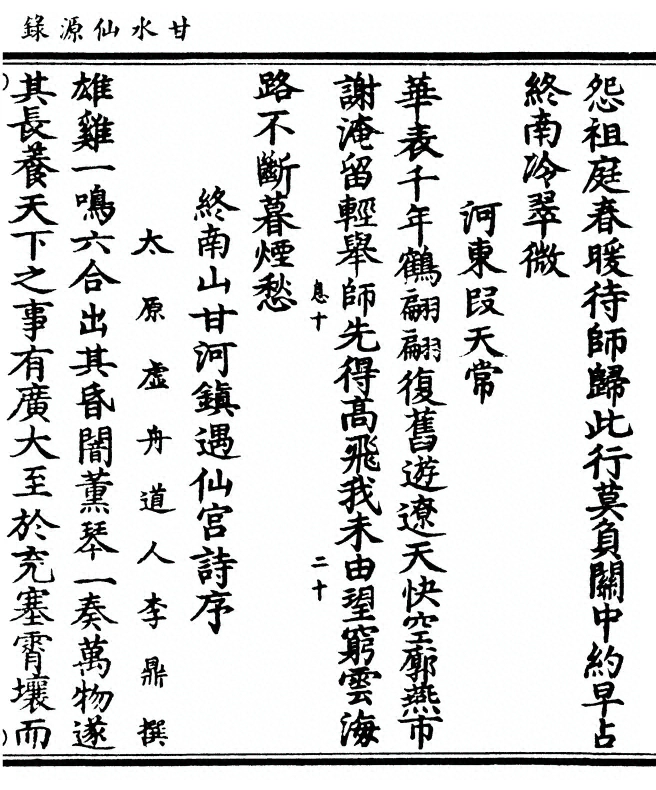 甘水仙源錄
怨祖庭春暖待師歸此行莫負關中約早占
終南冷翠微
河東段天常
華表千年鶴翩翩復舊遊遼天快空廓燕市
謝淹留輕舉師先得高飛我未由望窮雲海
息十
二十
路不斷暮煙愁
終南山甘河鎮遇仙宮詩序
太原虛舟道人李鼎撰
雄雞一鳴六合出其昏闇薰琴一奏萬物遂
其長養天下之事有廣大至於充塞霄壤而